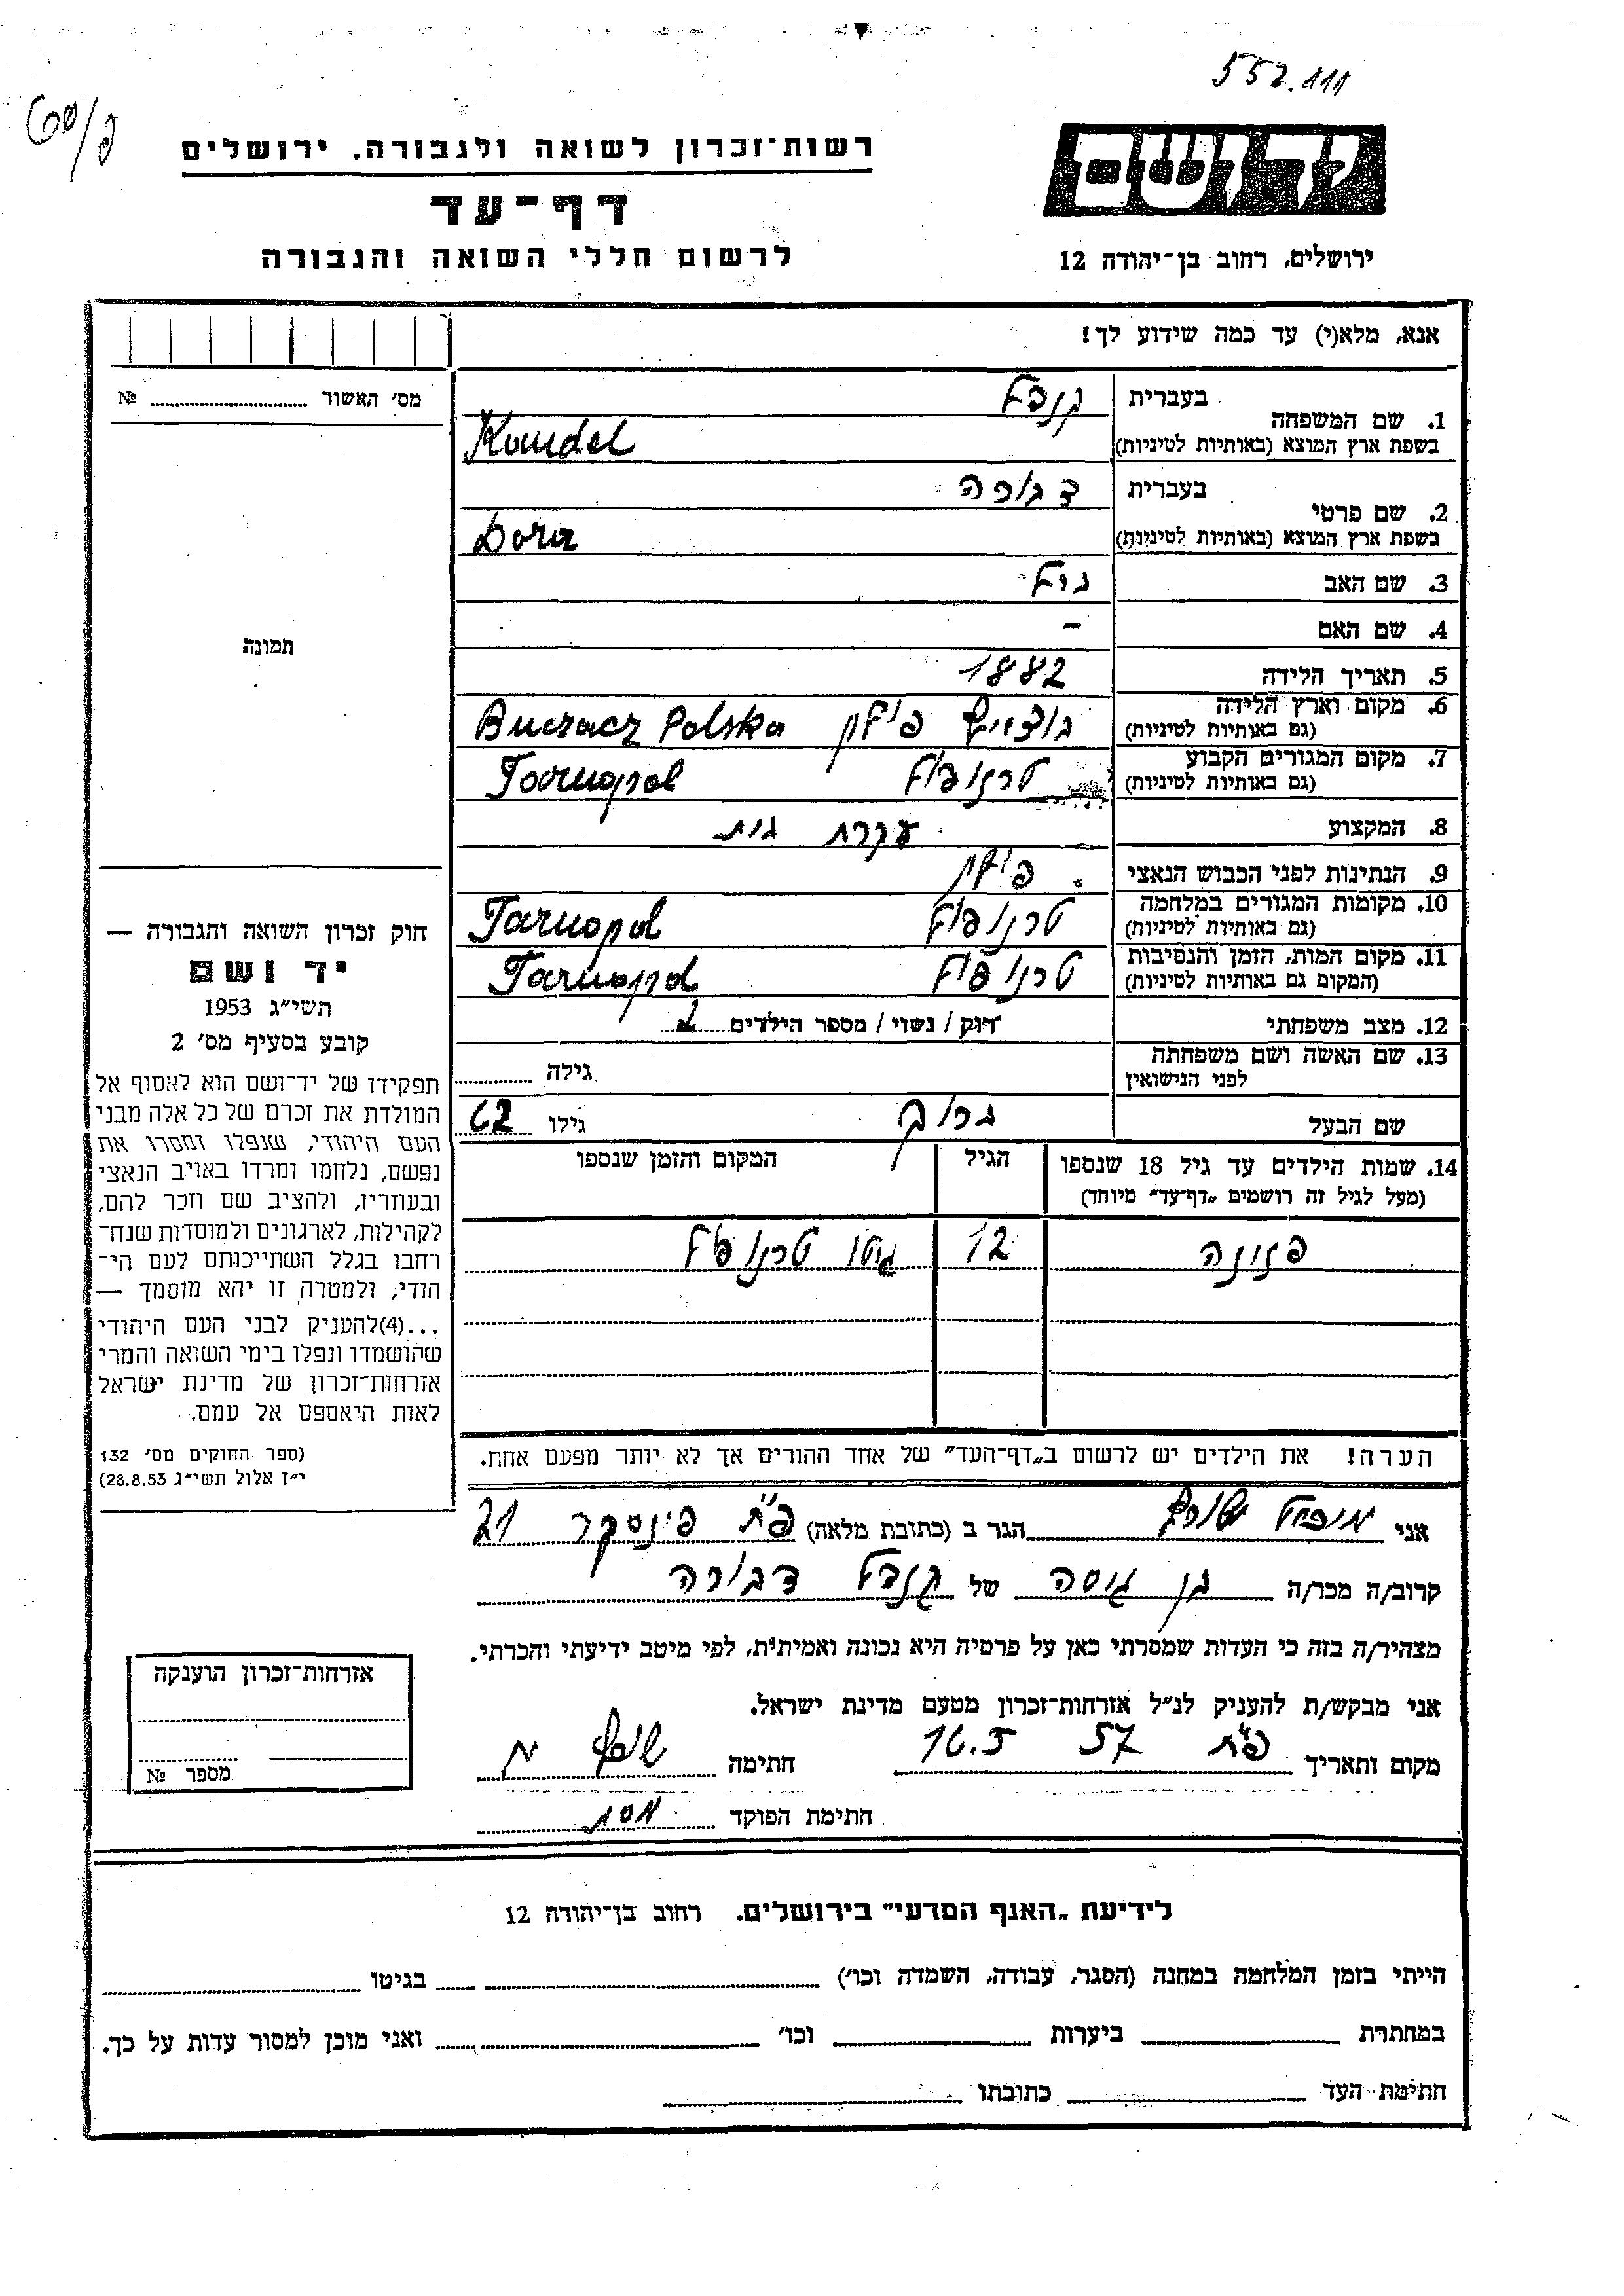 552.111
רשות־זכרון לשואה ולגבורה, ירושלים
דף־עד
לרשום חללי השואה והגבורה
ידושם
ירושלים, רחוב בן־יהודה 12
אנא, מלא(י) עד כמה שידוע לך!
מס׳ האשור №
תמונה
1. שם המשפחה
בעברית קנדל
בשפת ארץ המוצא (באותיות לטיניות) Kandel
2. שם פרטי
בעברית דבורה
בשפת ארץ המוצא (באותיות לטיניות) Dora
3. שם האב
4. שם האם –
5. תאריך הלידה 1882
6. מקום וארץ הלידה
(גם באותיות לטיניות) פולין Buczacz Polska
7. מקום המגורים הקבוע
(גם באותיות לטיניות) טרנופול Tarnopol
8. המקצוע עקרת בית
9. הנתינות לפני הכבוש הנאצי פולין
10. מקומות המגורים במלחמה
(גם באותיות לטיניות) טרנופול Tarnopol
11. מקום המות, הזמן והנסיבות
(המקום גם באותיות לטיניות) טרנופול Tarnopol
12. מצב משפחתי רווק / נשוי / מספר הילדים
13. שם האשה ושם משפחתה
לפני הנישואין גילה
שם הבעל ברוך גילו 62
14. שמות הילדים עד גיל 18 שנספו
(מעל לגיל זה רושמים „דף־עד״ מיוחד) הגיל המקום והזמן שנספו
12 גיטו טרנופול
הערה! את הילדים יש לרשום ב„דף־העד״ של אחד ההורים אך לא יותר מפעם אחת.
חוק זכרון השואה והגבורה —
יד ושם
תשי״ג 1953
קובע בסעיף מס׳ 2
תפקידו של יד־ושם הוא לאסוף אל
המולדת את זכרם של כל אלה מבני
העם היהודי, שנפלו ומסרו את
נפשם, נלחמו ומרדו באויב הנאצי
ובעוזריו, ולהציב שם וזכר להם,
לקהילות, לארגונים ולמוסדות שנח־
רחבו בגלל השתייכותם לעם הי־
הודי, ולמטרה זו יהא מוסמך —
...(4)להעניק לבני העם היהודי
שהושמדו ונפלו בימי השואה והמרי
אזרחות־זכרון של מדינת ישראל
לאות היאספם אל עמם.
(ספר החוקים מס׳ 132
י״ז אלול תשי״ג 28.8.53)
אני הגר ב (כתובת מלאה) פ״ת פינסקר 21
קרוב/ה מכר/ה בן גיסה של קנדל דבורה
מצהיר/ה בזה כי העדות שמסרתי כאן על פרטיה היא נכונה ואמיתית, לפי מיטב ידיעתי והכרתי.
אני מבקש/ת להעניק לנ״ל אזרחות־זכרון מטעם מדינת ישראל.
מקום ותאריך פ״ת 57 16.5 חתימה
חתימת הפוקד
אזרחות־זכרון הוענקה
מספר №
לידיעת „האגף המדעי״ בירושלים. רחוב בן־יהודה 12
הייתי בזמן המלחמה במחנה (הסגר, עבודה, השמדה וכו׳) בגיטו
במחתרת ביערות וכו׳ ואני מוכן למסור עדות על כך.
חתימת העד כתובתו